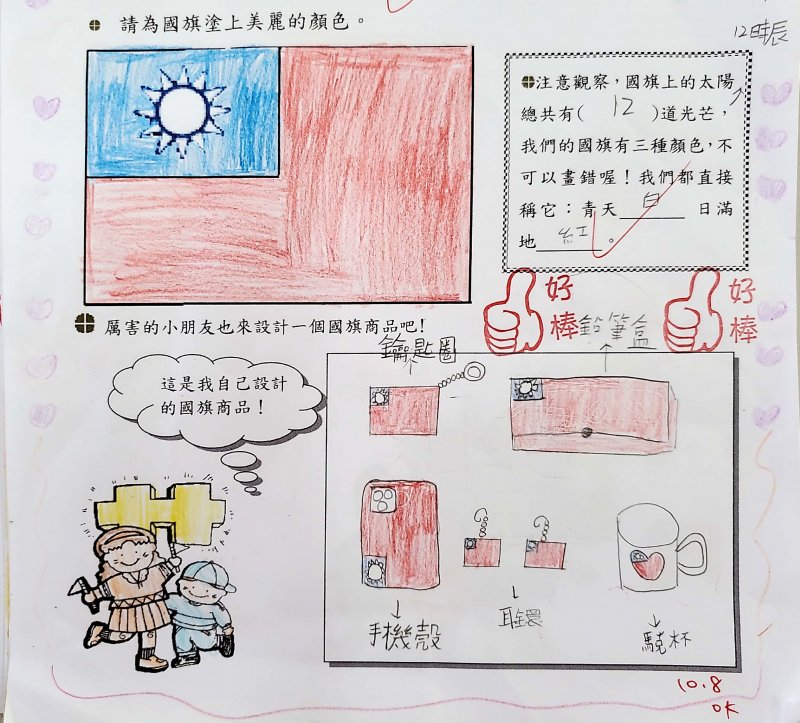 請為國旗塗上美麗的顏色。
12時辰
注意觀察，國旗上的太陽
總共有( 12 )道光芒，
我們的國旗有三種顏色，不
可以畫錯喔！我們都直接
稱它：青天 白 日滿
地 紅 。
好棒
好棒
厲害的小朋友也來設計一個國旗商品吧！
這是我自己設計
的國旗商品！
鑰匙圈
鉛筆盒
手機殼
耳環
10.8
OK